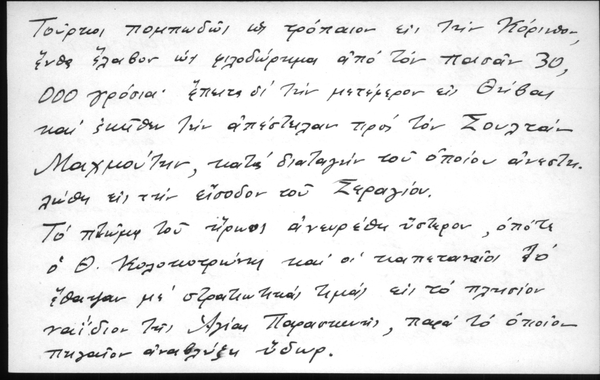 Τοῦρκοι πομπωδῶς ὡς τρόπαιον εἰς τήν Κόρινθον,
ἔνθα ἔλαβον ὡς φιλοδώρημα ἀπό τόν πασᾶν 30,
000 γρόσια· ἔπειτα δέ τήν μετέφερον εἰς Θήβας
καί ἐκεῖθεν τήν ἀπέστειλαν πρός τόν Σουλτάν
Μαχμούτην, κατά διαταγήν τοῦ ὁποίου ἀνεστη-
λώθη εἰς τήν εἴσοδον τοῦ Σεραγίου.
Τό πτῶμα τοῦ ἥρωος ἀνευρέθη ὕστερον, ὁπότε
ὁ Θ. Κολοκοτρώνης καί οἱ καπεταναῖοι τό
ἔθαψαν μέ στρατιωτικάς τιμάς εἰς τό πλησίον
ναΐδιον τῆς Ἁγίας Παρασκευῆς, παρά τό ὁποῖον
πηγαῖον ἀναβλύζει ὕδωρ.